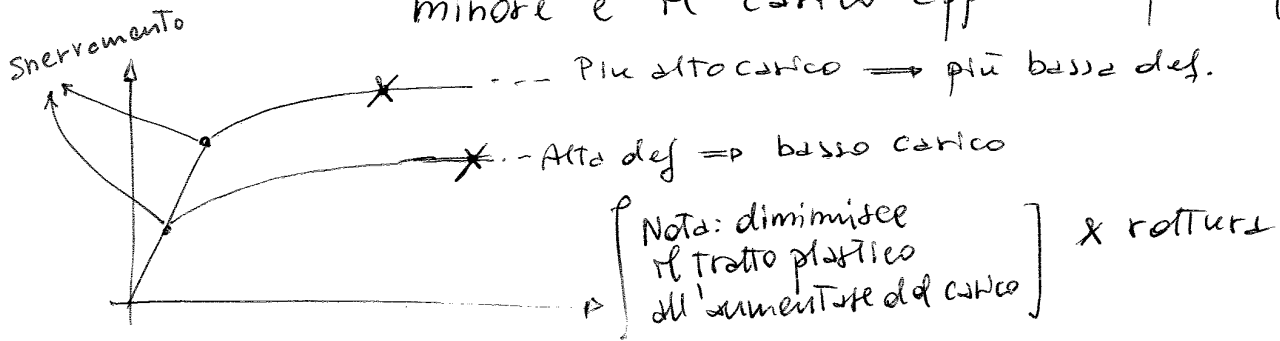 minore è il carico
Snervamento
--- Più alto carico ⟹ più bassa def.
--- Alta def ⟹ basso carico
Nota: diminuisce
il tratto plastico
all'aumentare del carico
x rottura